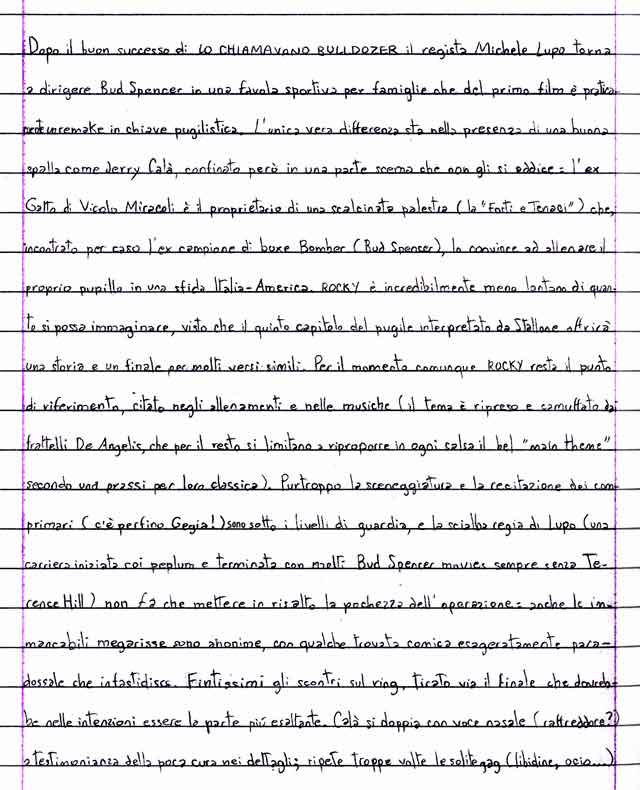 Dopo il buon successo di LO CHIAMAVANO BULLDOZER il regista Michele Lupo torna
a dirigere Bud Spencer in una favola sportiva per famiglie che del primo film è pratica-
mente un remake in chiave pugilistica. L'unica vera differenza sta nella presenza di una buona
spalla come Jerry Calà, confinato però in una parte scema che non gli si addice: l'ex
Gatto di Vicolo Miracoli è il proprietario di una scalcinata palestra (la "Forti e Tenaci") che,
incontrato per caso l'ex campione di boxe Bomber (Bud Spencer), lo convince ad allenare il
proprio pupillo in una sfida Italia-America. ROCKY è incredibilmente meno lontano di quan-
to si possa immaginare, visto che il quinto capitolo del pugile interpretato da Stallone offrirà
una storia e un finale per molti versi simili. Per il momento comunque ROCKY resta il punto
di riferimento, citato negli allenamenti e nelle musiche (il tema è ripreso e camuffato dai
frattelli De Angelis, che per il resto si limitano a riproporre in ogni salsa il bel "main theme"
secondo una prassi per loro classica). Purtroppo la sceneggiatura e la recitazione dei com-
primari (c'è perfino Gegia!) sono sotto i livelli di guardia, e la scialba regia di Lupo (una
carriera iniziata coi peplum e terminata con molti Bud Spencer movies sempre senza Te-
rence Hill) non fa che mettere in risalto la pochezza dell'operazione: anche le im-
mancabili megarisse sono anonime, con qualche trovata comica esageratamente para-
dossale che infastidisce. Fintissimi gli scontri sul ring, tirato via il finale che dovreb-
be nelle intenzioni essere la parte più esaltante. Calà si doppia con voce nasale (raffreddore?)
a testimonianza della poca cura nei dettagli; ripete troppe volte le solite gag (libidine, ocio...)